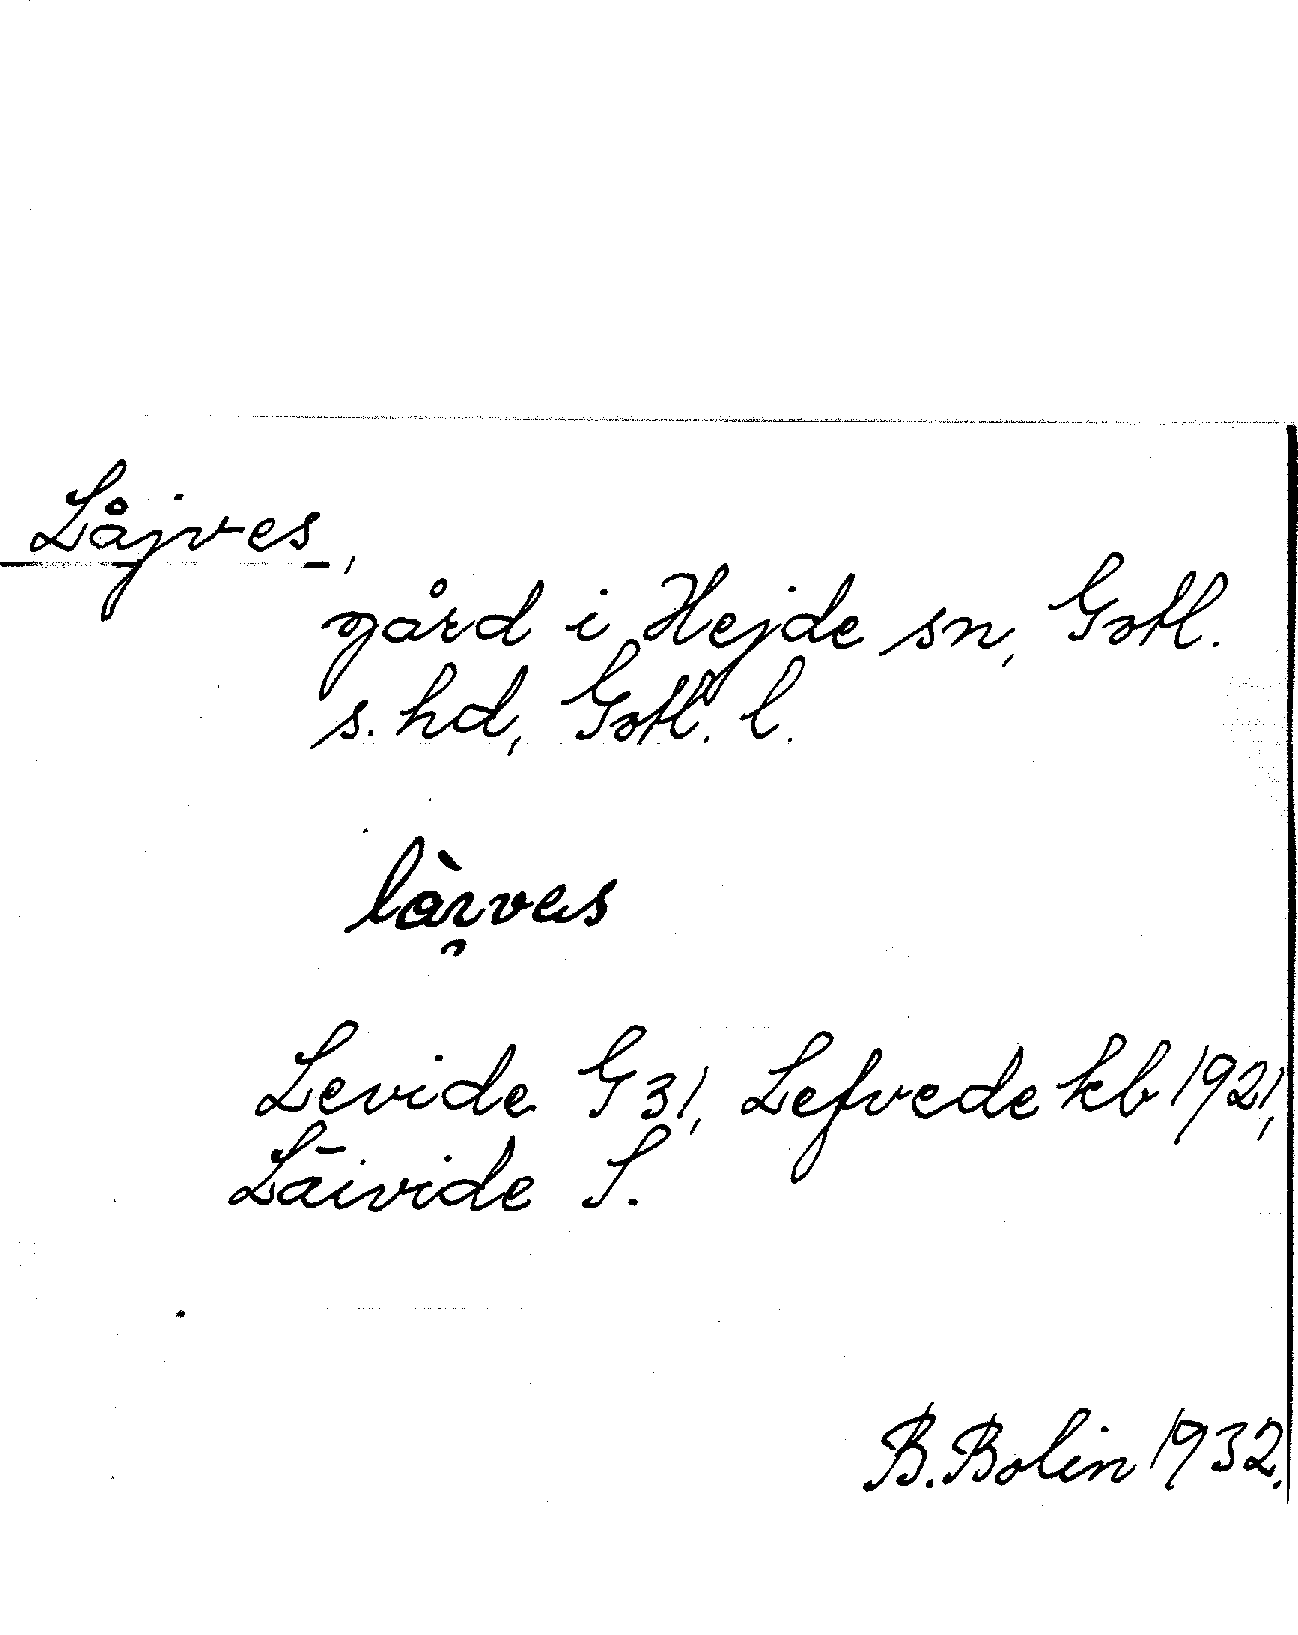 Låjves,
gård i Hejde sn, Gotl.
s. hd, Gotl. l.
Levide G 31, Lefvede kb 1921,
Läivide S.
B. Bolin 1932.